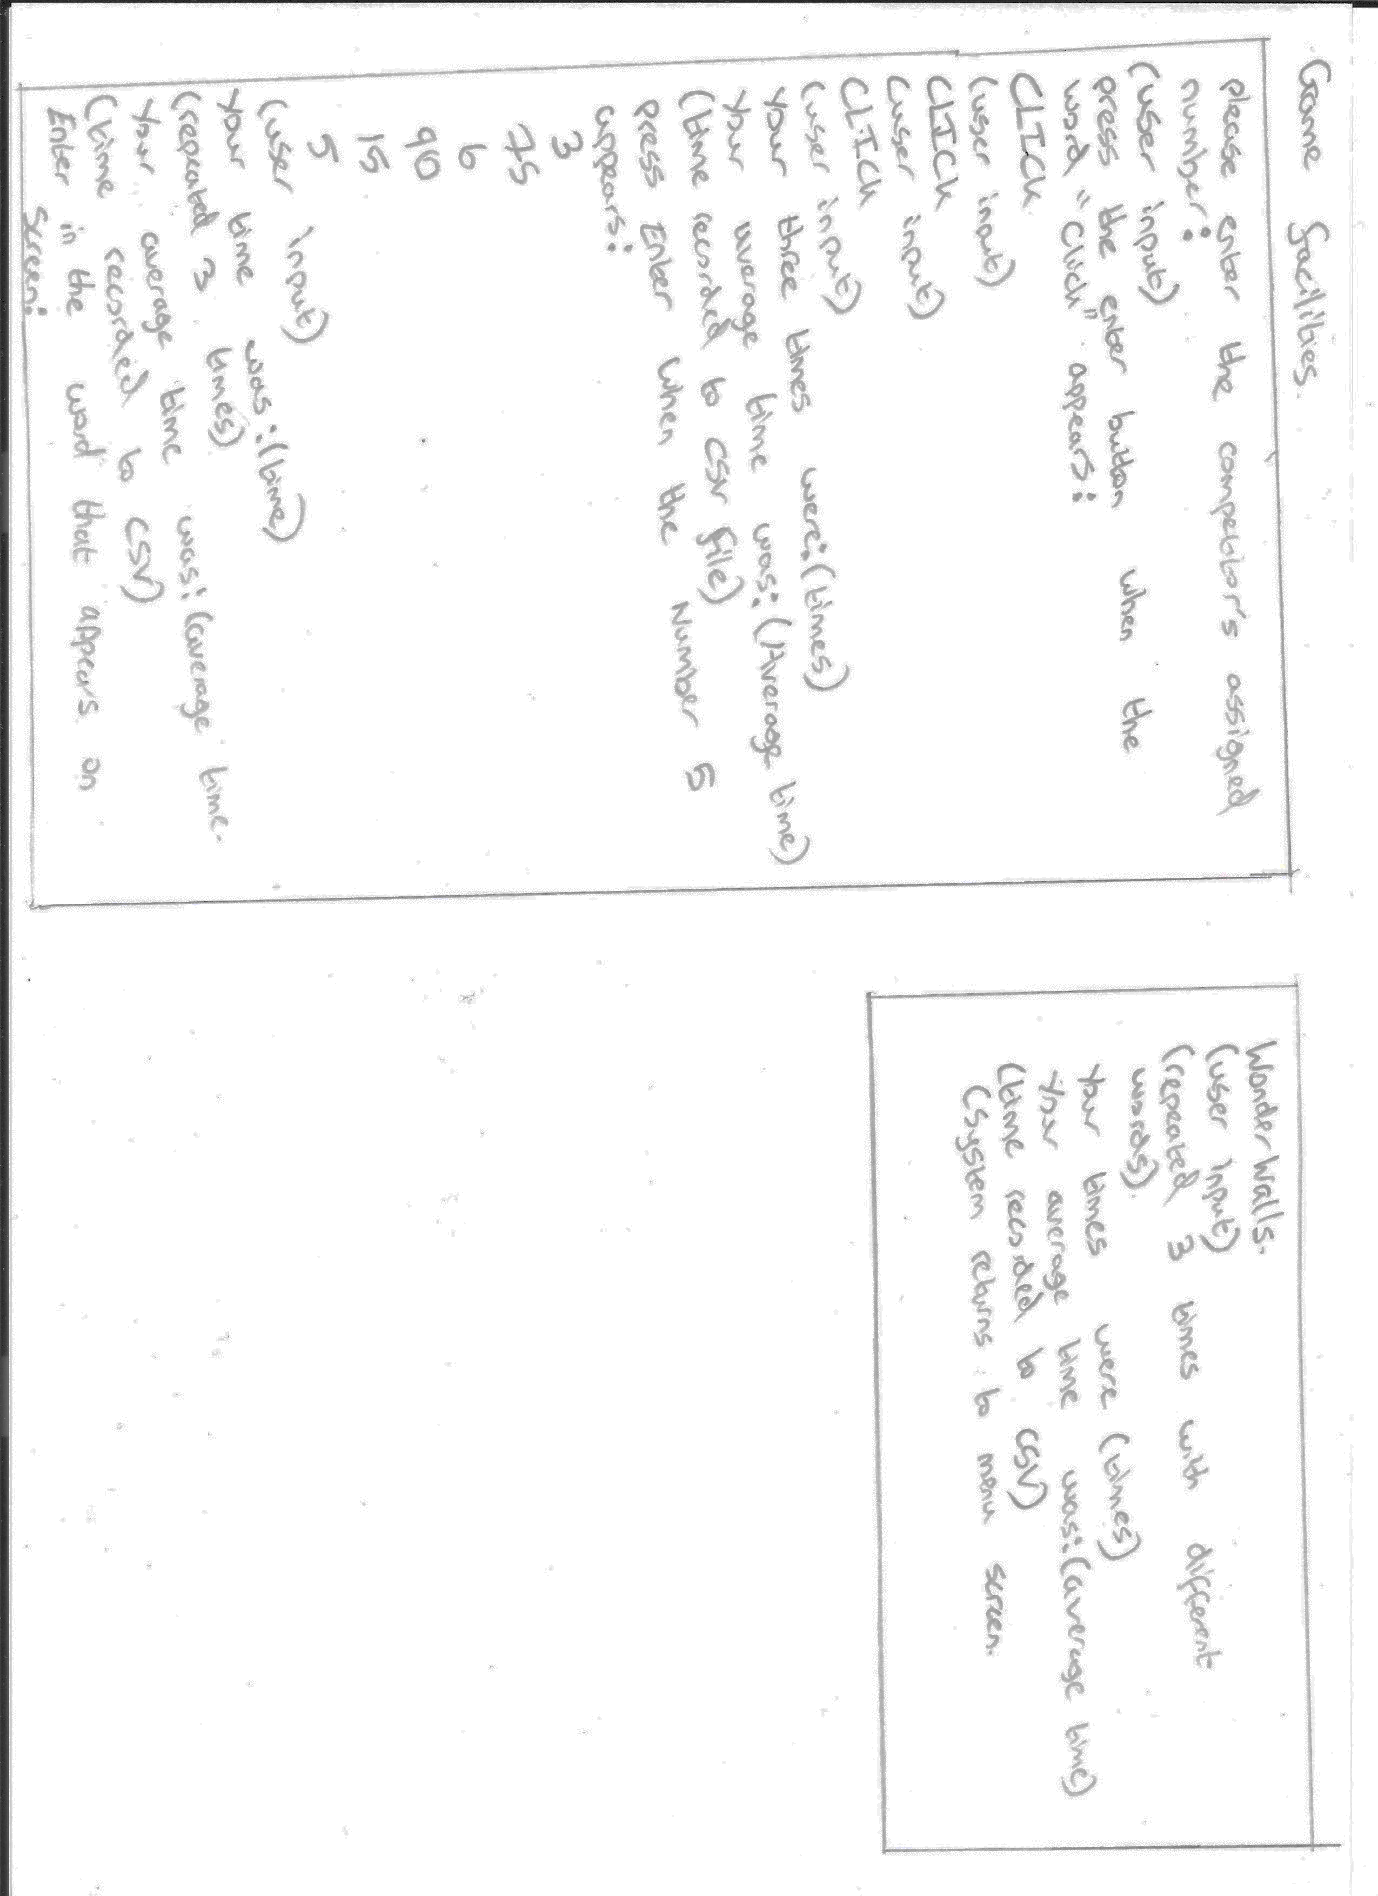 Game facilities.
please enter the competitor's assigned
number:
(user input)
press the enter button when the
word "click" appears:
CLICK
(user input)
CLICK
(user input)
CLICK
(user input)
Your three times were:(times)
Your average time was:(Average time)
(time recorded to CSV file)
press Enter when the Number 5
appears:
3
75
6
90
15
5
(user input)
Your time was:(time)
(repeated 3 times)
Your average time was:(average time.
(time recorded to CSV)
Enter in the word that appears on
screen:
Wonderwalls.
(user input)
(repeated 3 times with different
words).
Your times were (times)
Your average time was:(average time)
(time recorded to CSV)
(System returns to menu screen.